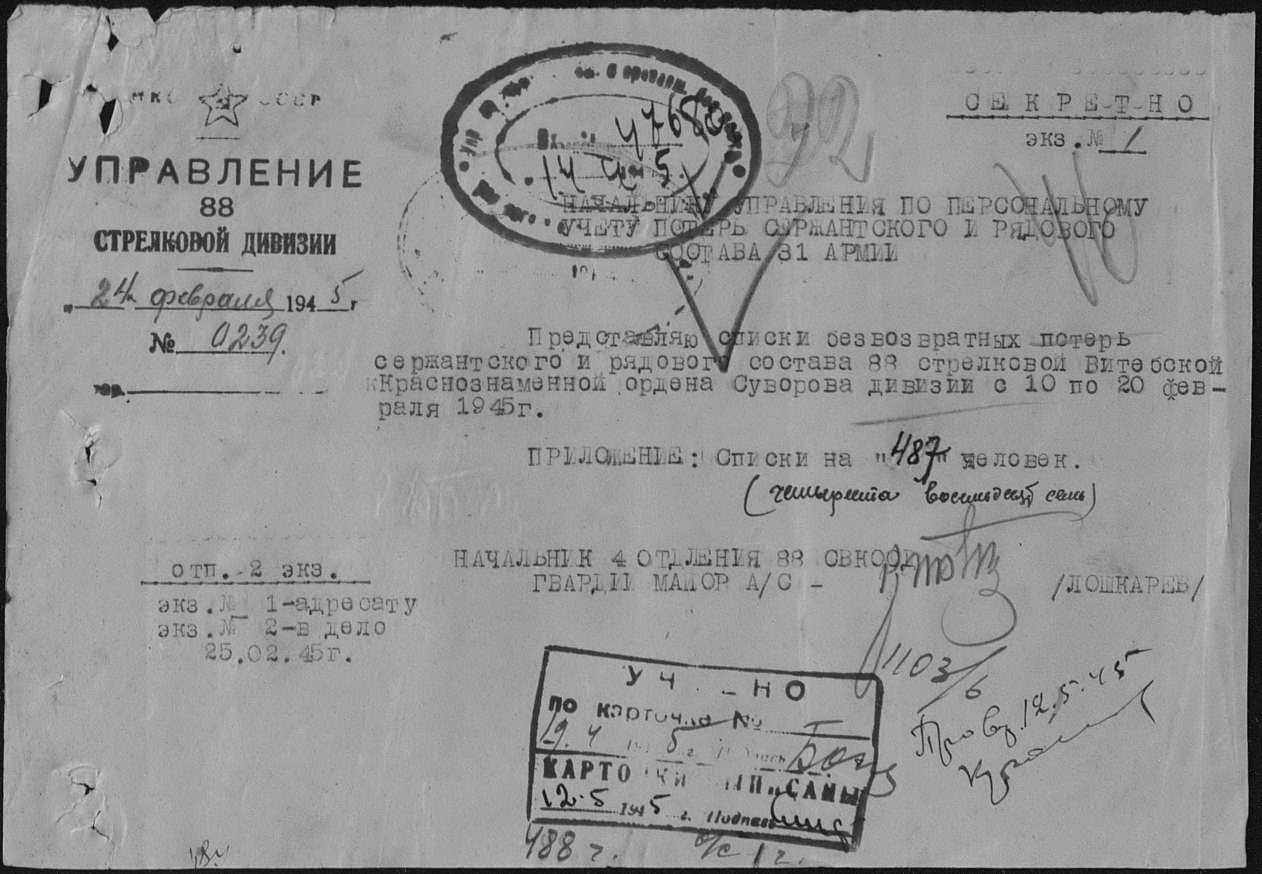 НКО СССР
УПРАВЛЕНИЕ
88
СТРЕЛКОВОЙ ДИВИЗИИ
"24" февраля 1945 г
№ 0239.
гор.
47680
14 4 5
СЕКРЕТНО
экз.№ 1
НАЧАЛЬНИКУ УПРАВЛЕНИЯ ПО ПЕРСОНАЛЬНОМУ
УЧЕТУ ПОТЕРЬ СЕРЖАНТСКОГО И РЯДОВОГО
СОСТАВА 31 АРМИИ
Представляю списки безвозвратных потерь
сержантского и рядового состава 88 стрелковой Витебской
кКраснознаменной ордена Суворова дивизии с 10 по 20 фев-
раля 1945г.
ПРИЛОЖЕНИЕ: Списки на "487" человек.
(четыреста восемьдесят семь)
НАЧАЛЬНИК 4 ОТДЛЕНИЯ 88 СВКОСД
ГВАРДИИ МАЙОР А/С -
/ЛОШКАРЕВ/
отп. 2 экз.
экз.№ 1-адресату
экз.№ 2-в дело
25.02.45г.
1103/6
Пров. 12.5.45
УЧ НО
по карточке №
19.4 5 г.
КАРТО КИ САНЫ
12.5 1945 г. Подпись
488 г.